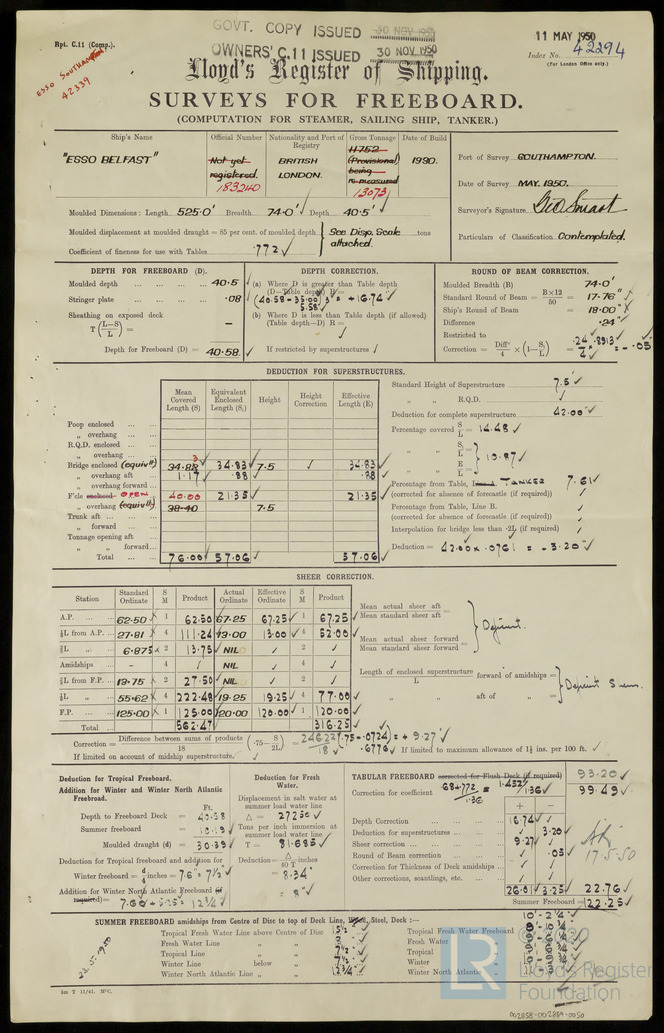 GOVT. COPY ISSUED 30 NOV 1950
OWNERS' C.11 ISSUED 30 NOV 1950
11 MAY 1950
Rpt. C.11 (Comp.).
Index No. 42294
(For London Office only.)
ESSO SOUTHAMPTON
42339
Lloyd's Register of Shipping.
SURVEYS FOR FREEBOARD.
(COMPUTATION FOR STEAMER, SAILING SHIP, TANKER.)
Ship's Name
Official Number
Nationality and Port of Registry
Gross Tonnage
Date of Build
"ESSO BELFAST"
Not yet registered.
183240
BRITISH
LONDON.
11752
(Provisional)
being
re-measured
13073
Port of Survey SOUTHAMPTON.
Date of Survey MAY. 1950.
Surveyor's Signature Geo Smart
Particulars of Classification Contemplated.
Moulded Dimensions: Length 525.0' Breadth 74.0' Depth 40.5'
Moulded displacement at moulded draught = 85 per cent. of moulded depth } See Disp. Scale attached. tons
Coefficient of fineness for use with Tables .772
DEPTH FOR FREEBOARD (D).
Moulded depth ... 40.5
Stringer plate ... .08
Sheathing on exposed deck
T (L–S / L) = –
Depth for Freeboard (D) = 40.58
DEPTH CORRECTION.
(a) Where D is greater than Table depth
(D—Table depth) R =
(40.58 – 35.00) 3" = + 16.74
5.58
(b) Where D is less than Table depth (if allowed)
(Table depth—D) R =
If restricted by superstructures
ROUND OF BEAM CORRECTION.
Moulded Breadth (B) 74.0'
Standard Round of Beam = B×12 / 50 = 17.76"
Ship's Round of Beam = 18.00"
Difference .24"
Restricted to
Correction = Diffce / 4 × (1 – S₁ / L) = .24 / 4 × .8913 = – .05
DEDUCTION FOR SUPERSTRUCTURES.
Mean Covered Length (S)
Equivalent Enclosed Length (S₁)
Height
Height Correction
Effective Length (E)
Poop enclosed
„ overhang
R.Q.D. enclosed
„ overhang
Bridge enclosed (equivt) 34.83 34.83 7.5 34.83
„ overhang aft 1.17 .88 .88
„ overhang forward
F'cle enclosed OPEN 40.00 21.35 21.35
„ overhang (equivt) 38.40 7.5
Trunk aft
„ forward
Tonnage opening aft
„ „ forward
Total 76.00 57.06 57.06
Standard Height of Superstructure 7.5'
„ „ R.Q.D.
Deduction for complete superstructure 42.00"
Percentage covered S / L = 14.48
„ S₁ / L = } 10.87
„ E / L =
Percentage from Table, TANKER 7.61
(corrected for absence of forecastle (if required))
Percentage from Table, Line B.
(corrected for absence of forecastle (if required))
Interpolation for bridge less than ·2L (if required)
Deduction = 42.00 × .0761 = – 3.20"
SHEER CORRECTION.
Station
Standard Ordinate
S M
Product
Actual Ordinate
Effective Ordinate
S M
Product
A.P. 62.50 1 62.50 67.25 67.25 1 67.25
⅙L from A.P. 27.81 4 111.24 13.00 13.00 4 52.00
⅓L „ 6.875 2 13.75 NIL 2
Amidships – 4 NIL 4
⅓L from F.P. 13.75 2 27.50 NIL 2
⅙L „ 55.62 4 222.48 19.25 19.25 4 77.00
F.P. 125.00 1 125.00 120.00 120.00 1 120.00
Total 562.47 316.25
Mean actual sheer aft / Mean standard sheer aft =
Mean actual sheer forward / Mean standard sheer forward =
} Deficient.
Length of enclosed superstructure / L forward of amidships =
„ aft of „ =
} Deficient Sheer.
Correction = Difference between sums of products / 18 (·75 – S / 2L) = 246.22 / 18 (.75 – .0724) = + 9.27"
.6776
If limited on account of midship superstructure.
If limited to maximum allowance of 1½ ins. per 100 ft.
Deduction for Tropical Freeboard.
Addition for Winter and Winter North Atlantic Freeboard.
Ft.
Depth to Freeboard Deck = 40.58
Summer freeboard = 10.19
Moulded draught (d) = 30.39
Deduction for Tropical freeboard and addition for
Winter freeboard = d / 4 inches = 7.6" = 7½"
Addition for Winter North Atlantic Freeboard (if required) = 7.60 + 5.25 = 12¾"
Deduction for Fresh Water.
Displacement in salt water at summer load water line
Δ = 27250
Tons per inch immersion at summer load water line
T = 81.685
Deduction = Δ / 40 T inches
= 8.34"
= 8"
TABULAR FREEBOARD corrected for Flush Deck (if required) 93.20
Correction for coefficient .68+.772 / 1.36 = 1.452 / 1.36 99.49
+ –
Depth Correction 16.74
Deduction for superstructures 3.20
Sheer correction 9.27
Round of Beam correction .05
Correction for Thickness of Deck amidships
Other corrections, scantlings, etc.
26.01 3.25 22.76
Summer Freeboard = 122.25
17.5.50
SUMMER FREEBOARD amidships from Centre of Disc to top of Deck Line, Wood, Steel, Deck :—
Tropical Fresh Water Line above Centre of Disc 15½"
Fresh Water Line „ „
Tropical Line „ „ 7½"
Winter Line below „ 7½"
Winter North Atlantic Line „ „ 12¾"
Tropical Fresh Water Freeboard
Fresh Water „
Tropical „
Winter „
Winter North Atlantic „
© 2020
LR
Lloyd's Register
Foundation
002858-002869-0050